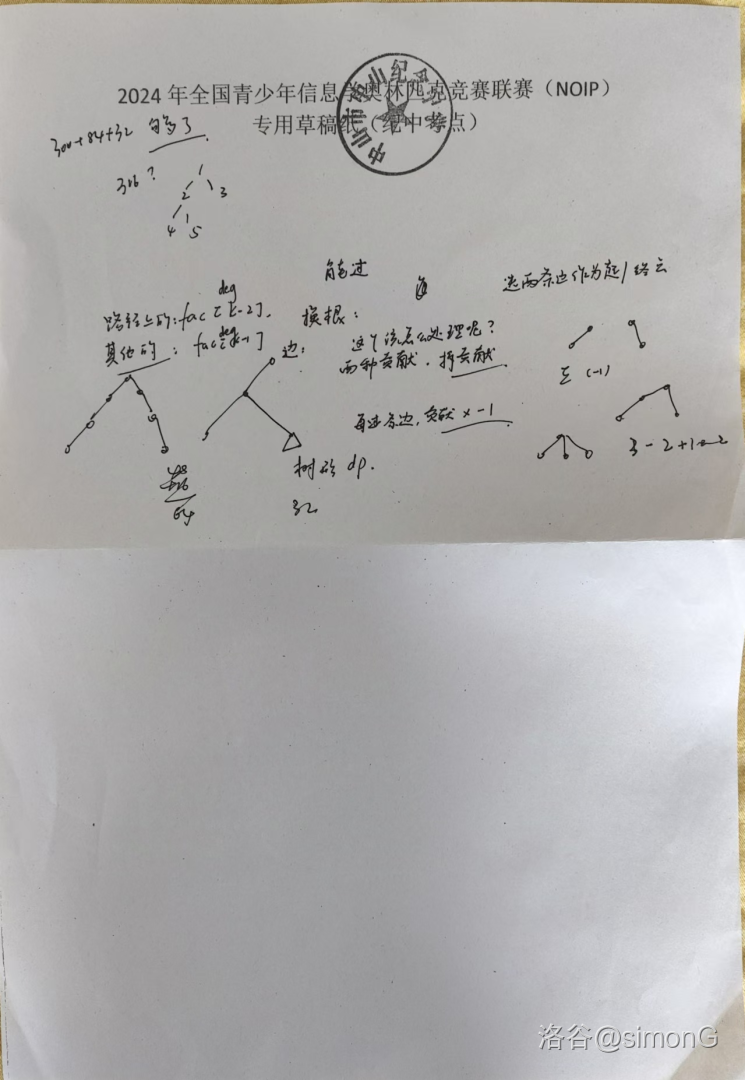 2024 年全国青少年信息学奥林匹克竞赛联赛（NOIP）
专用草稿纸（纪中考点）
中山市中山纪念中学
300+84+32 够了
316?
1
2 3
4 5
能过
选两条边作为起/终点
deg
路径上的: fac[k-2].
换根:
其他的: fac[deg-1]
边:
这个该怎么处理呢？
两种贡献, 拆贡献
Σ (-1)
每选条边, 贡献 × -1
3-2+1=2
树形 dp.
64
32
洛谷@simonG